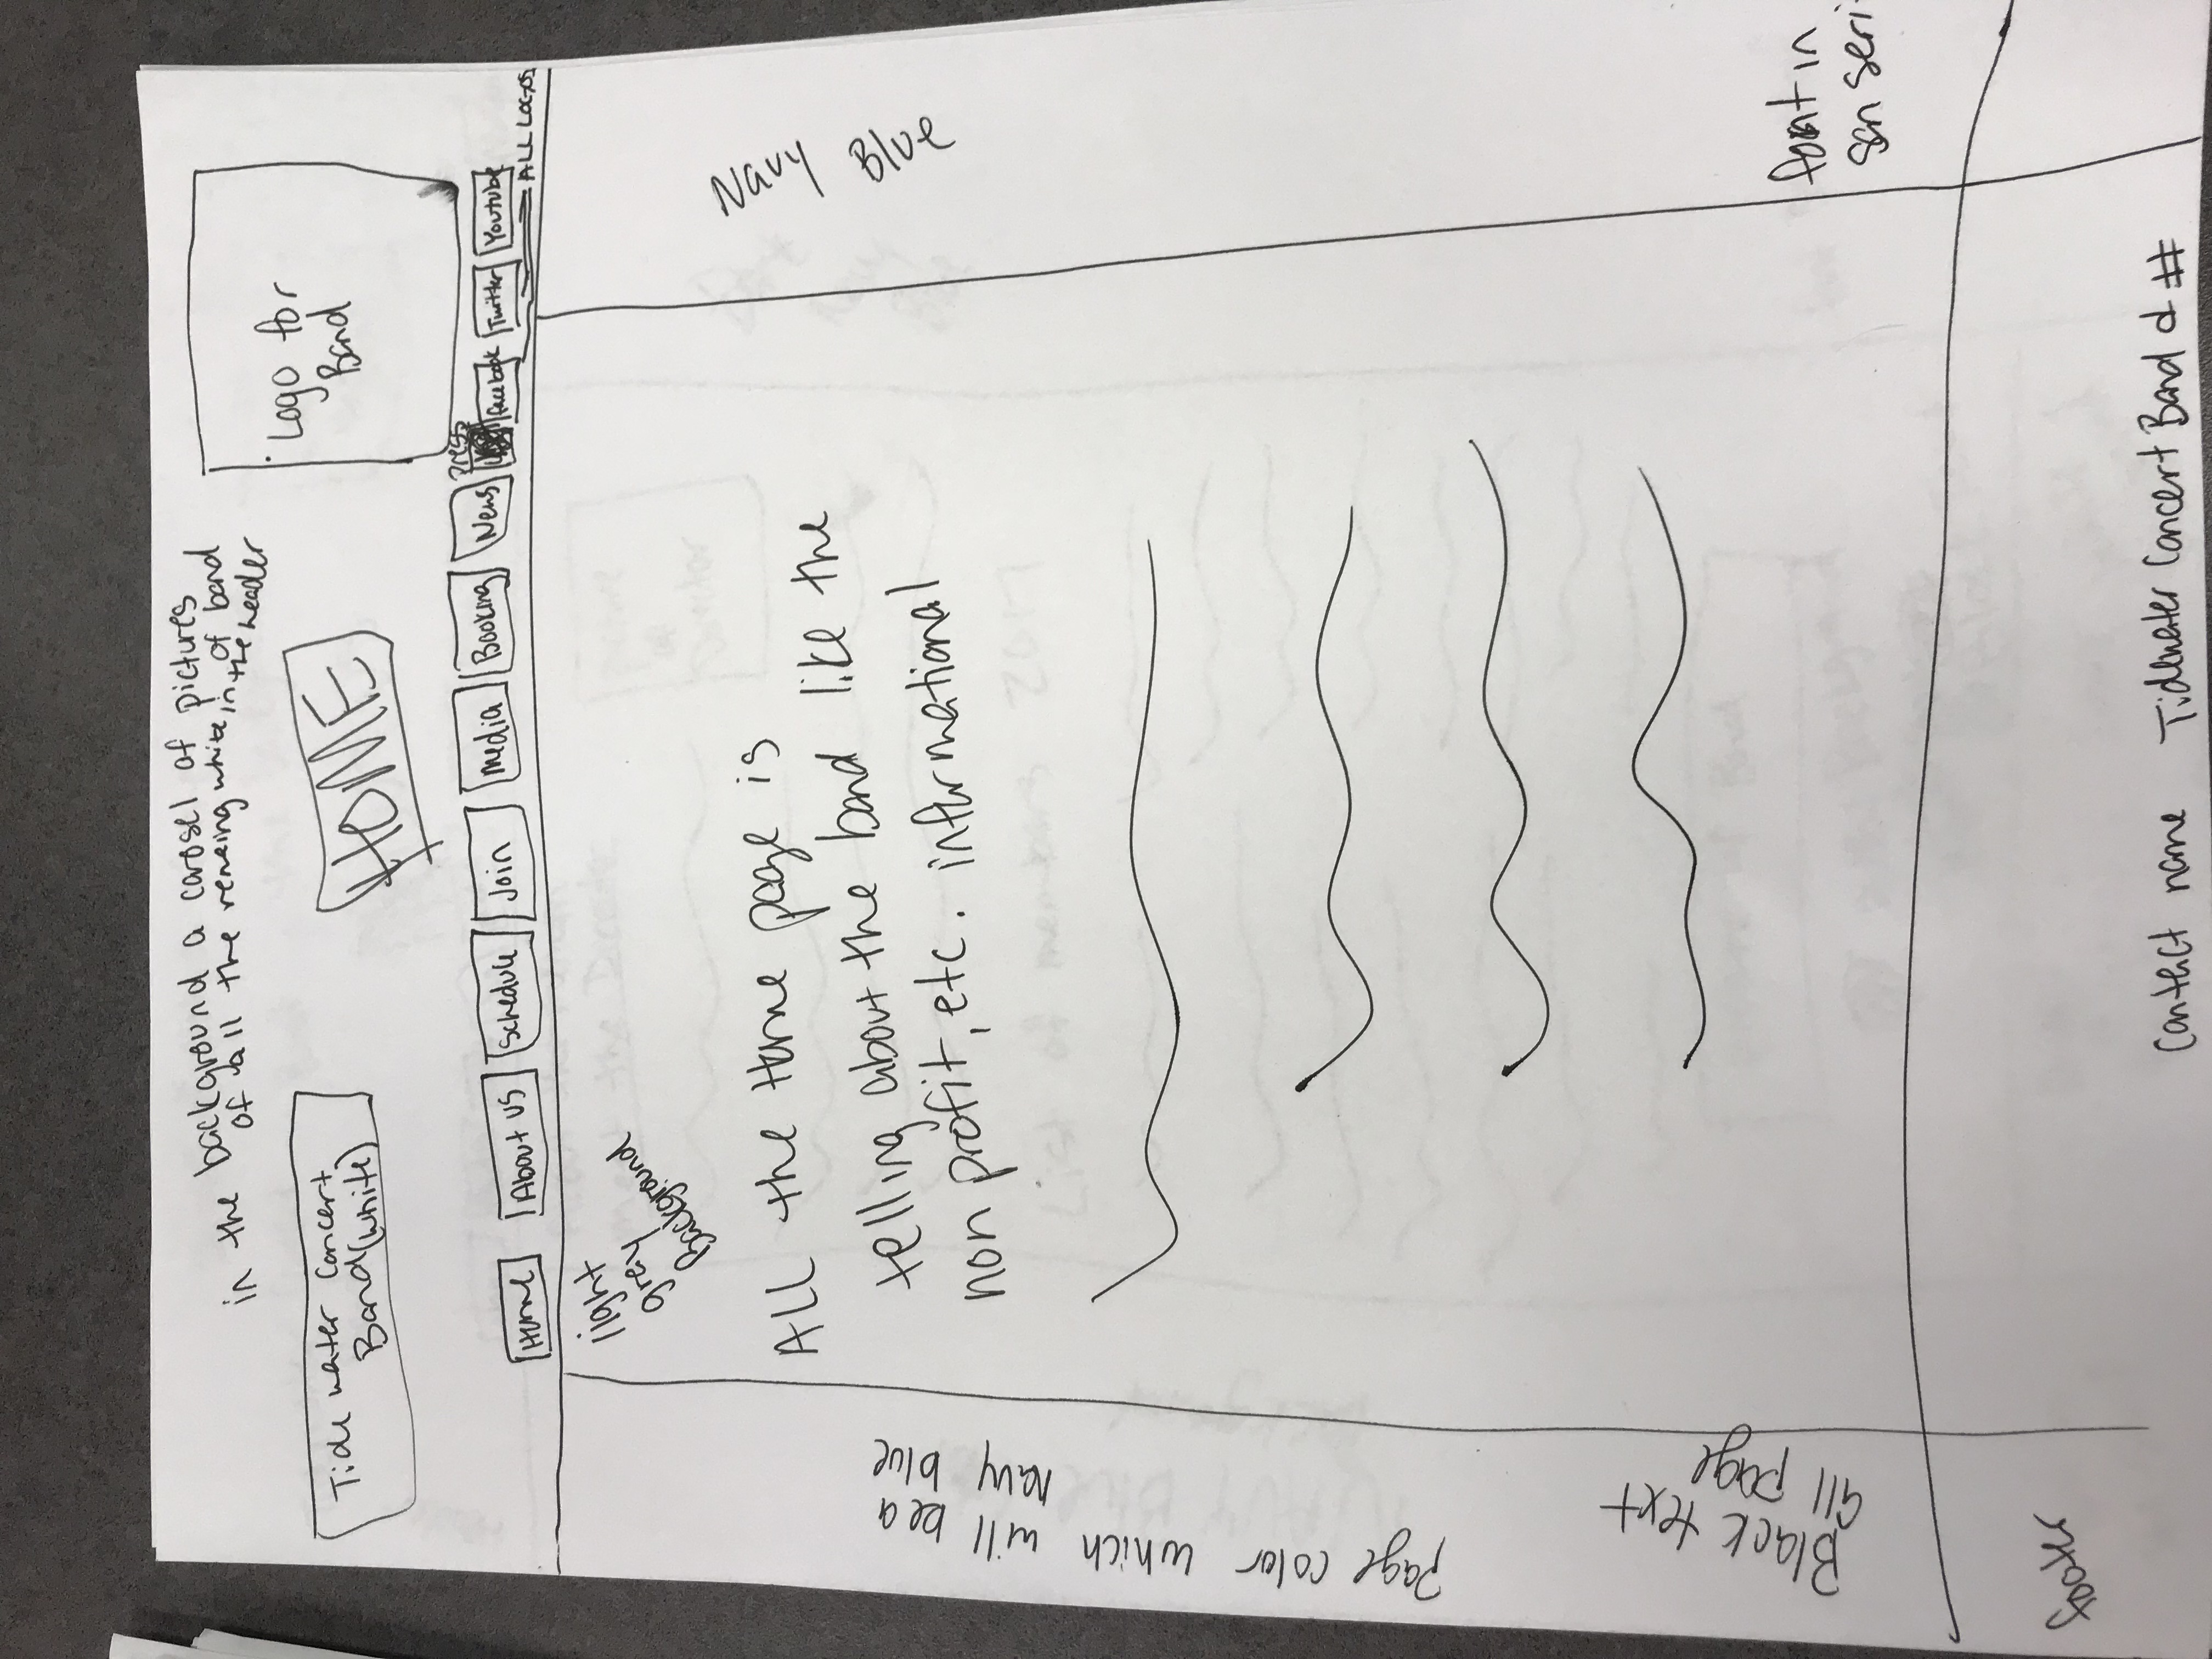 in the background a carosel of pictures
of band
of all the remaing white in the header
Tidewater Concert
Band (white)
HOME
Logo for
Band
Home
About us
Schedule
Join
Media
Booking
News
Press
facebook
Twitter
Youtube
ALL LOGOS
light
grey
Background
ALL the Home page is
telling about the band like the
non profit, etc. informational
Page color which will be a
navy blue
Navy Blue
Black text
all page
font in
san seri
footer
Contact name Tidewater Concert Band & #